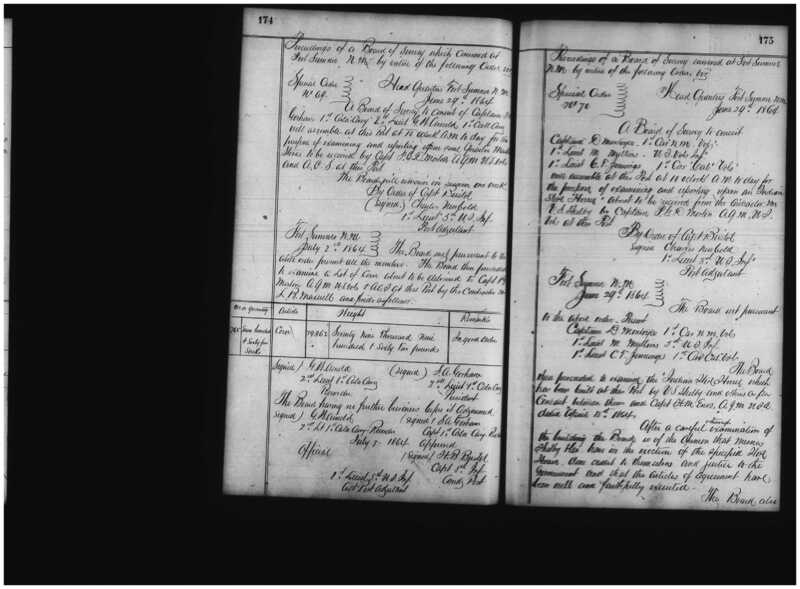 174
Proceedings of a Board of Survey which convened at
Fort Sumner N.M. by virtue of the following Order viz
Special Order
No 69.
Head Quarters Fort Sumner N.M.
June 29th 1864
A Board of Survey to consist of Captain
Gorham 1st Colo Cavy 2d Lieut G.H. Arnold 1st Colo Cav
will assemble at this Post at 10 o'clock A.M. to day for the
purpose of examining and reporting upon some Quarter Master
Stores to be received by Capt Morton A.Q.M. U.S. Vols
and A.C.S. at this Post
The Board will convene in
By Order of Capt Bristol
(signed) Charles Newbold
1st Lieut 5th U.S. Inf
Post Adjutant
Fort Sumner N.M.
July 2nd 1864
The Board met pursuant to the
above order present all the members. The Board then proceeded
to examine a Lot of Corn about to be delivered to Capt
Morton A.Q.M. U.S. Vols & A.C.S. at this Post by the Contractor Mr
L. B. Maxwell and finds as follows.
No or Quantity Article Weight Remarks
765 Seven hundred & Sixty five Sacks Corn 79.962 Seventy nine thousand nine hundred & Sixty two pounds In good order
Signed) G. H. Arnold
2nd Lieut 1st Colo Cavy
Recorder
(signed) S. A. Gorham
Lieut 1st Colo Cavy
President
The Board having no further business before it Adjourned
signed) G. H. Arnold
2nd Lt 1st Colo Cavy Recorder
(signed) S. A. Gorham
Capt 1st Colo Cavy
July 3 1864 Approved
(signed) H. B. Bristol
Capt 5th Inf
Comdg Post
Official
1st Lieut 5th U.S. Inf
Post Adjutant
175
Proceedings of a Board of Survey convened at Fort Sumner
N.M. by virtue of the following Order, viz
Special Order
No 70
Head Quarters Fort Sumner N.M.
June 29th 1864
A Board of Survey to consist
Captain D. Montoya 1st Cav N.M. Vols
1st Lieut M. Mullins 5th U.S. Inf
1st Lieut C. F. Jennings 1st Cav Cal Vols
will assemble at this Post at 10 o'clock A.M. to day for
the purpose of examining and reporting upon an Indian
Store House about to be received from the Contractor Mr
V. S. Shelby by Captain Morton A.Q.M. U.S.
Vols at this Post
By Order of Capt Bristol
signed Charles Newbold
1st Lieut 5th U.S. Inf
Post Adjutant
Fort Sumner N.M.
June 29th 1864
The Board met pursuant
to the above order. Present
Captain D. Montoya 1st Cav N.M. Vols
1st Lieut M. Mullins 5th U.S. Inf
1st Lieut C. F. Jennings 1st Cav Cal Vols
The Board
then proceeded to examine the Indian Store House which
has been built at this Post by V. S. Shelby and others as per
Contract between them and Capt H. M. Enos, A.Q.M. U.S.A.
dated April 1864.
After a careful examination of
the building the Board is of the Opinion that Messrs
Shelby & Co have in the erection of the specified Store
House, done credit to themselves and justice to the
Government and that the Articles of Agreement have
been well and faithfully executed.
The Board also